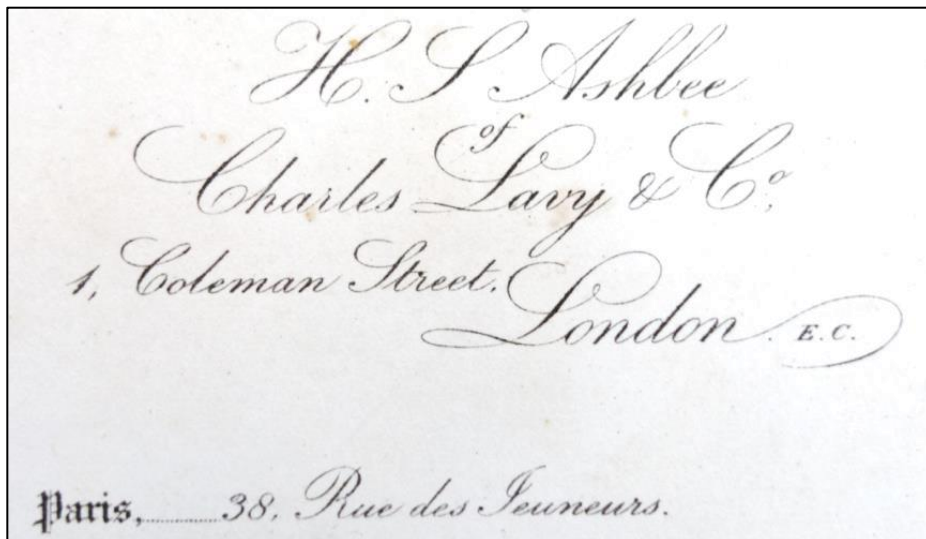 H. S Ashbee
of
Charles Lavy & Co.,
1, Coleman Street.
London. E.C.
Paris, ........ 38, Rue des Jeuneurs.